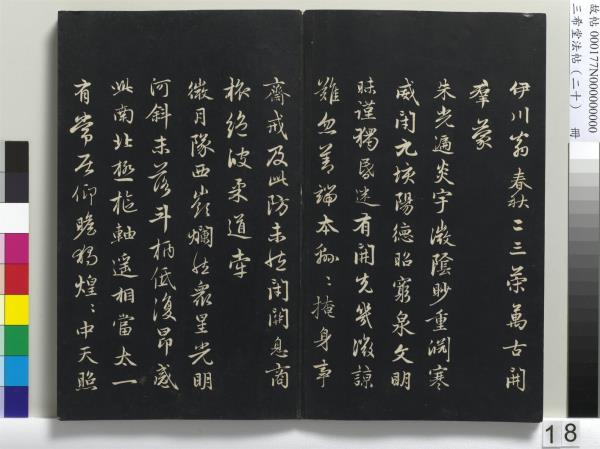 故帖 000177N000000000
三希堂法帖（二十） 冊
伊川翁春秋二三葉萬古開
羣蒙
朱光遍炎宇微陰眇重淵寒
威閉九埏陽德昭窮泉文明
昧謹獨昏迷有開先幾微諒
難忽善端本綿〻掩身事
齋戒及此防未然閉關息商
旅絕彼柔道牽
微月隊西嶺爛然衆星光明
河斜未落斗柄低復昂感
此南北極樞軸遥相當太一
有常居仰瞻獨煌〻中天照
18